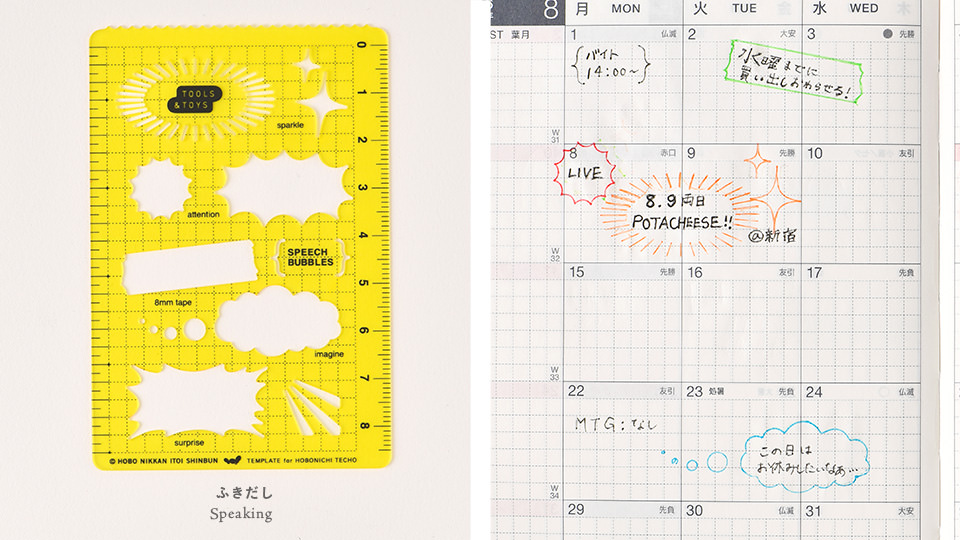 TOOLS
& TOYS
sparkle
attention
SPEECH
BUBBLES
8mm tape
imagine
surprise
0
1
2
3
4
5
6
7
8
© HOBO NIKKAN ITOI SHINBUN TEMPLATE for HOBONICHI TECHO
ふきだし
Speaking
8 月 MON 火 TUE 水 WED
ST 葉月
1 仏滅 2 大安 3 先勝
バイト
14:00〜
水曜までに
買い出しおわらせる!
W
31
8 赤口 9 先勝 10 友引
LIVE
8.9両日
POTACHEESE!!
@新宿
W
32
15 先勝 16 友引 17 先負
W
33
22 友引 23 処暑 先負 24 仏滅
MTG:なし
この日は
お休みしたいなぁ…
W
34
29 先負 30 仏滅 31 大安